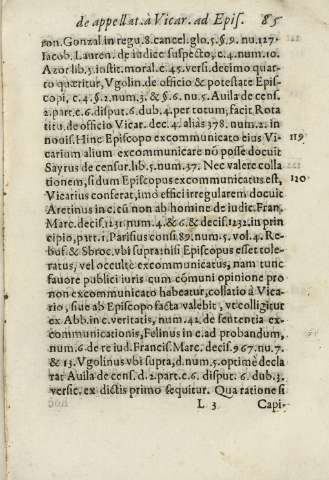 de appellat. à Vicar. ad Epis. 85
ron. Gonzal in regu. 8. cancel. glo. 5. §. 9. nu. 127.
Iacob. Lauren. de iudice suspecto, c. 4. num. 10.
Azor lib. 5. instit. moral. c. 45. versi. decimo quar-
to quæritur, Vgolin. de officio & potestate Epis-
copi, c. 4. §. 2. num. 3. & §. 6. nu. 5. Auila de cens.
2. part. c. 6. disput. 6. dub. 4. per totum, facit Rota
titu. de officio Vicar. dec. 4. aliàs 378. num. 2. in
nouis. Hinc Episcopo excommunicato eius Vi- 119
carium alium excommunicare nō posse docuit
Sayrus de censur. lib. 5. num. 37. Nec valere colla
tionem, si dum Episcopus excommunicatus est, 120
Vicarius conferat, imò effici irregularem docuit
Aretinus in c. cū non ab homine de iudic. Fran.
Marc. decis. 1231 num. 4. & 6. & decis. 1232. in prin
cipio, part. 1. Parisius cons. 89. num. 5. vol. 4. Re-
buf. & Sbroc. vbi supra: nisi Episcopus esset tole-
ratus, vel occultè excommunicatus, nam tunc
fauore publici iuris cum cōmuni opinione pro
non excommunicato habeatur, collatio à Vica-
rio, siue ab Episcopo facta valebit, vt colligitur
ex Abb. in c. veritatis, num. 42. de sententia ex-
communicationis, Felinus in c. ad probandum,
num. 6. de re iud. Francis. Marc. decis. 967. nu. 7.
& 13. Vgolinus vbi supra, d. num. 5. optimè decla
rat Auila de cens. d. 2. part. c. 6. disput. 6. dub. 3.
versic. ex dictis primo sequitur. Qua ratione si
L 3 Capi-